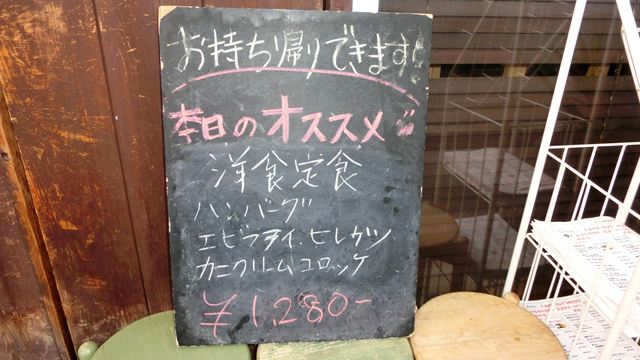 お持ち帰りできます!
本日のオススメ
洋食定食
ハンバーグ
エビフライ・ヒレカツ
カニクリームコロッケ
¥1,280-